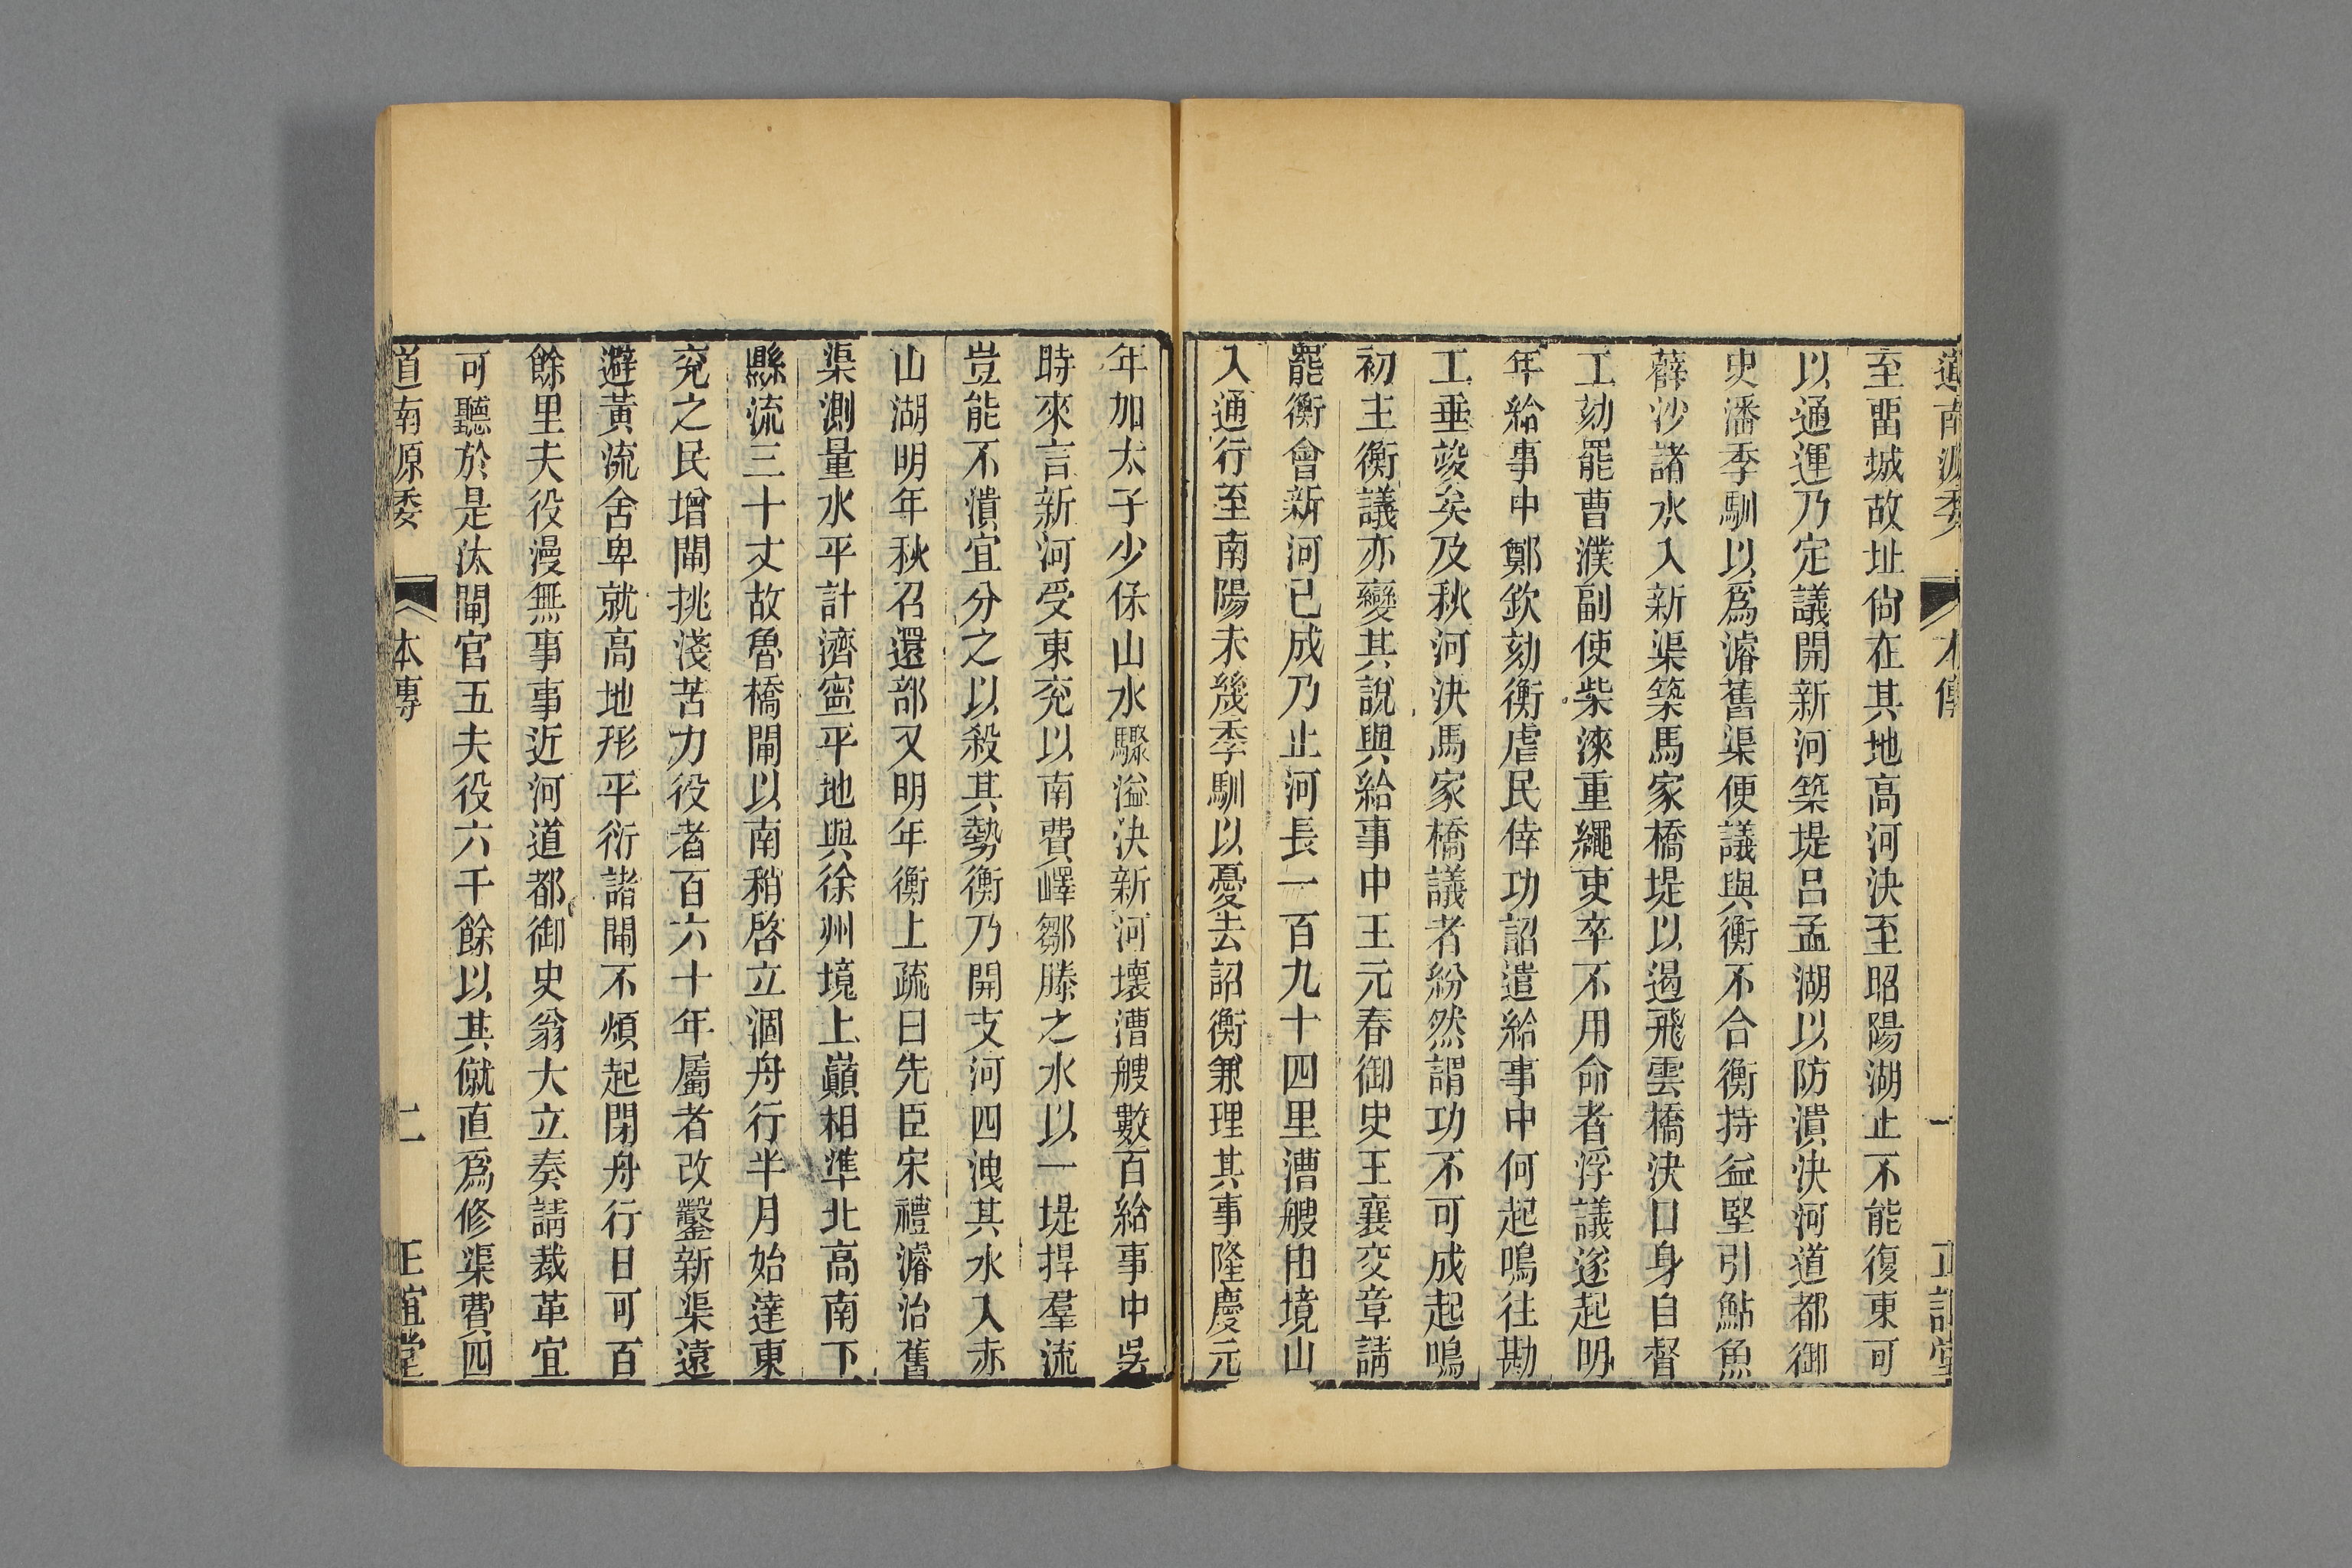 道南源委 本傳 一 正誼堂
至畱城故址尙在其地高河決至昭陽湖止不能復東可
以通運乃定議開新河築堤呂孟湖以防潰決河道都御
史潘季馴以爲濬舊渠便議與衡不合衡持益堅引鮎魚
薛沙諸水入新渠築馬家橋堤以遏飛雲橋決口身自督
工劾罷曹濮副使柴淶重繩吏卒不用命者浮議遂起明
年給事中鄭欽劾衡虐民倖功詔遣給事中何起鳴往勘
工垂竣矣及秋河決馬家橋議者紛然謂功不可成起鳴
初主衡議亦變其說與給事中王元春御史王襄交章請
罷衡會新河已成乃止河長一百九十四里漕艘由境山
入通行至南陽未幾季馴以憂去詔衡兼理其事隆慶元
年加太子少保山水驟溢決新河壞漕艘數百給事中吳
時來言新河受東兖以南費嶧鄒滕之水以一堤捍羣流
豈能不潰宜分之以殺其勢衡乃開支河四洩其水入赤
山湖明年秋召還部又明年衡上疏曰先臣宋禮濬治舊
渠測量水平計濟寧平地與徐州境上巔相準北高南下
縣流三十丈故魯橋閘以南稍啓立涸舟行半月始達東
兖之民增閘挑淺苦力役者百六十年屬者改鑿新渠遠
避黃流舍卑就高地形平衍諸閘不煩起閉舟行日可百
餘里夫役漫無事事近河道都御史翁大立奏請裁革宜
可聽於是汰閘官五夫役六千餘以其僦直爲修渠費四
道南原委 本傳 二 正誼堂